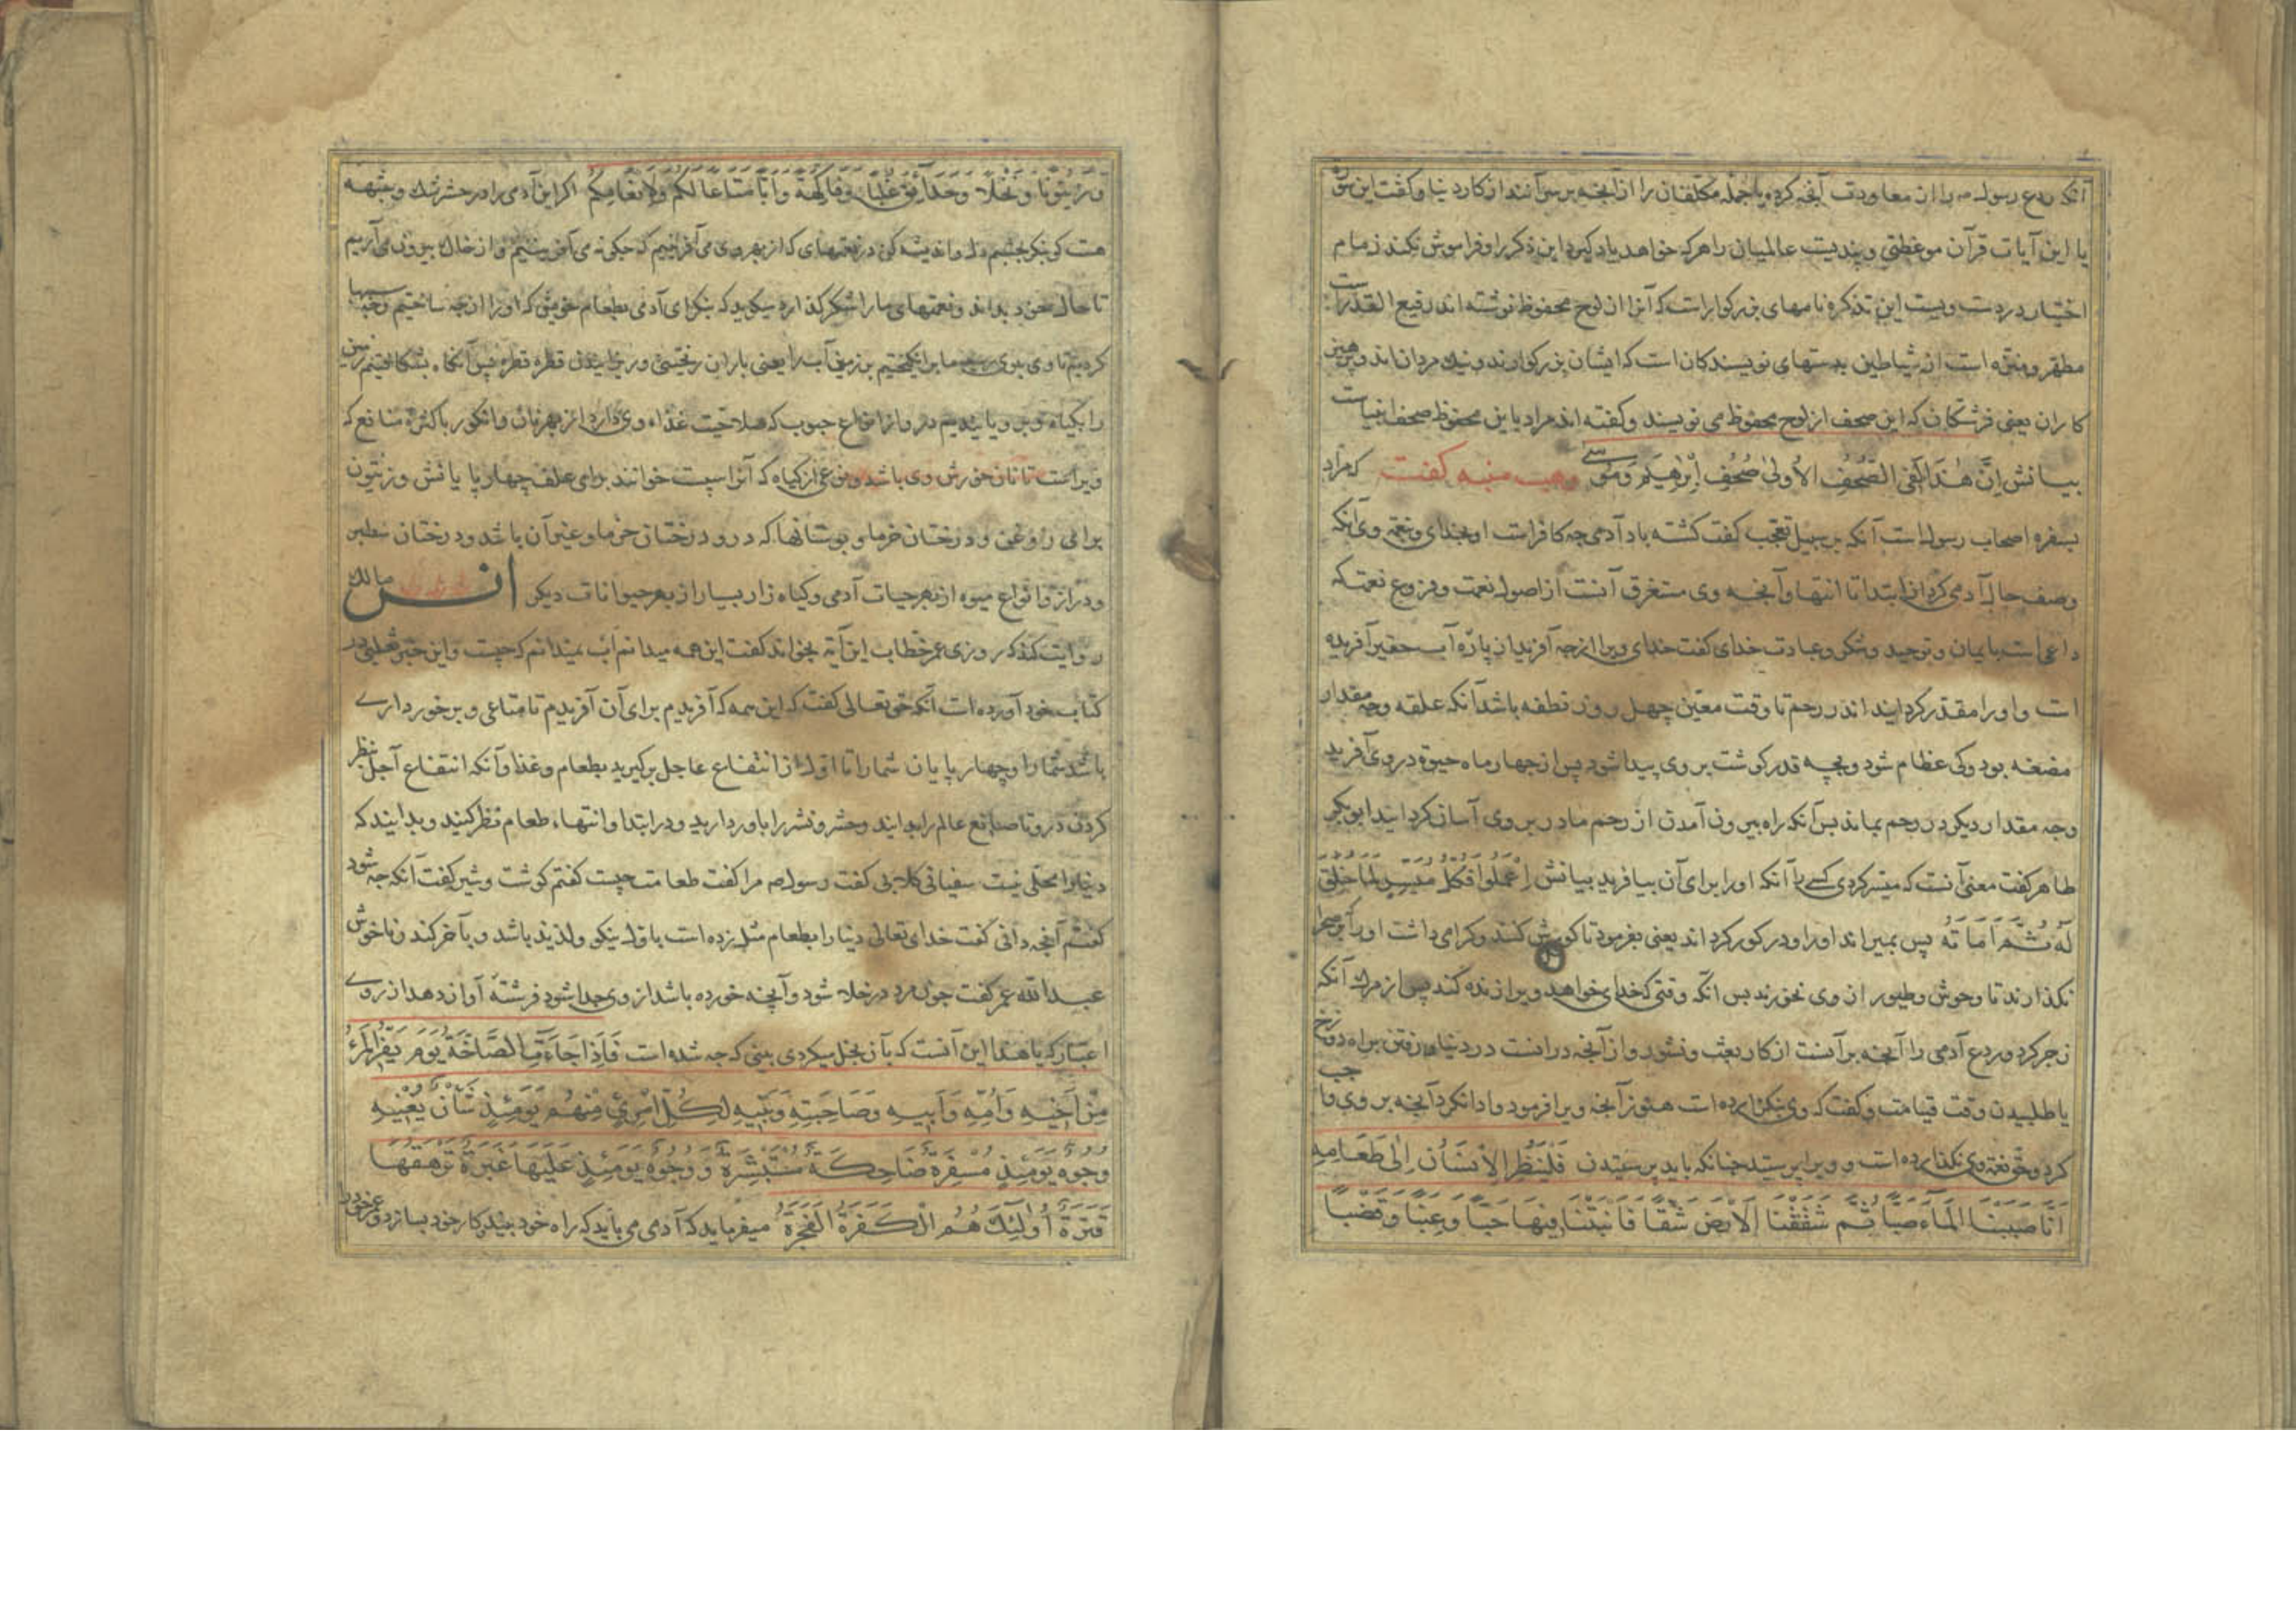 آنکه ردع رسوله را از معاودت آنچه کرده یا جمله مکلفان را از آنچه برسر آنند از کار دنیا و گفت این سوره
یا این آیات قرآن موعظتی و پندیست عالمیان را هرکه خواهد یاد گیرد این ذکر را و فراموش نکند زمام
اختیار در دست ویست این تذکره نامهای بزرگوارست که آنرا از لوح محفوظ نوشته اند رفیع القدرست
مطهر و منزه است از شیاطین بدستهای نویسندگان است که ایشان بزرگوارند و نیک مردان اند و پرهیز
کاران یعنی فرشتگان که این صحف از لوح محفوظ می نویسند و گفته اند مراد باین محفوظ صحف انبیاست
بیانش اِنَّ هٰذَا لَفِی الصُّحُفِ الاُولیٰ صُحُفِ اِبْرٰهِیمَ وَمُوسے وهب منبه گفت که مراد
بسفره اصحاب رسول است آنکه بر سبیل تعجب گفت کشته باد آدمی چه کافرست او بخدای و نعمة وی آنکه
وصف حال آدمی کرد از ابتدا تا انتها و آنچه وی مستغرق آنست از اصول نعمت و فروع نعمت که
داعی است بایمان و توحید و شکر و عبادت خدای گفت خدای ویرا از چه آفرید از پارّه آب حقیر آفریده
است و او را مقدر گردایند اندر رحم تا وقت معین چهل روز نطفه باشد آنکه علقه وچه مقدار
مضغه بود و کی عظام شود و بچه قدر گوشت بر وی پیدا شود پس از چهار ماه حیوة در وی آفرید
وچه مقدار دیگر در رحم بماند پس آنکه راه بیرون آمدن از رحم مادر بر وی آسان گردایند ابوبکر
طاهر گفت معنی آنست که میسر کردی کسے را آنکه او را برای آن بیافرید بیانش اِعْمَلُوا فَکُلٌّ مُیَسَّرٌ لِمَا خُلِقَ
لَهُ ثُمَّ اَمَاتَهُ پس بمیراند او را و در گور کرد اند یعنی بفرمود تا گورش کنند و گرامی داشت او را بر صحرا
نگذارند تا وحوش و طیور از وی نخورند پس انگه وقتی که خدای خواهد ویرا زنده کند پس از مرگ آنکه
زجر کرد و ردع آدمی را آنچه بر آنست از کار بعث و نشور و از آنچه درانست در دنیا رفتن براه دوزخ
یا طلبیدن وقت قیامت و گفت که وی نگزارده است هنوز آنچه ویرا فرمود و ادا نکرد آنچه بر وی واجب
کرد و حق نعمة وی نگذارده است و ویرا پرستید چنانکه باید پرستیدن فَلْیَنْظُرِ الْاِنْسَانُ اِلیٰ طَعَامِهِ
اَنَّا صَبَبْنَا الْمَاءَ صَبًّا ثُمَّ شَقَقْنَا الْاَرْضَ شَقًّا فَاَنْبَتْنَا فِیهَا حَبًّا وَعِنَبًا وَقَضْبًا
وَزَیْتُونًا وَنَخْلًا وَحَدَائِقَ غُلْبًا وَفَاکِهَةً وَاَبًّا مَتَاعًا لَکُمْ وَلِاَنْعَامِکُمْ اگر این آدمی را در حشر شک و شبهه
هست کو بنگر بچشم دل و اندیشه کن در نعمتهای که از بهر وی می آفرینیم که چگونه می آفرینیم و از خاک بیرون می آریم
تا حال خود بداند و نعمتهای ما را شکر گذارد میگوید که بنگر ای آدمی بطعام خویش که او را از چه ساختیم وچه سببها
کردیم تا وی بوی رسد ما برانگیختیم بر زمین آب را یعنی باران ریختنی و رسانیدن قطره قطره پس آنگاه بشکافتیم زمین
را بگیاه و برویانیدیم درو از انواع حبوب که صلاحیت غذاء وی دارد از بهر نان و انگور باکثره منافع که
ویراست تا نان خورش وی باشد و نوعی از گیاه که آنرا سپست خوانند برای علف چهار پایانش و زیتون
برای روغن و درختان خرما و بوستانها که درو درختان خرما و غیر آن باشد و درختان سطبر
و دراز و انواع میوه از بهر حیات آدمی و گیاه زار بسیار از بهر حیوانات دیگر انس مالك
روایت کند که روزی عمر خطاب این آیه بخواند گفت این همه میدانم اب نمیدانم که چیست و این خبر ثعلبی در
کتاب خود آورده است آنکه حق تعالی گفت که این همه که آفریدیم برای آن آفریدیم تا متاعی و برخوردارے
باشد شما را و چهار پایان شما را تا اول از انتفاع عاجل برگیرید بطعام و غذا و آنکه انتفاع آجل بنظر
کردن درو تا صانع عالم را بدایند و حشر و نشر را باور دارید و در ابتدا و انتهاء طعام نظر کنید و بدایند که
دنیا را محلی نیست سفیانی کلابی گفت رسوله مرا گفت طعامت چیست گفتم گوشت و شیر گفت آنکه چه شود
گفتم آنچه دانی گفت خدای تعالی دنیا را بطعام مثل زده است باول نیکو و لذیذ باشد و بآخر گند و ناخوش
عبدالله عمر گفت چون مرد در خلا شود و آنچه خورده باشد از وی جدا شود فرشتۀ آواز دهد از روے
اعتبار که یا هذا این آنست که بآن بخل میکردی ببینی که چه شده است فَاِذَا جَاءَتِ الصَّاخَّةُ یَوْمَ یَفِرُّ الْمَرْءُ
مِنْ اَخِیهِ وَاُمِّهِ وَاَبِیهِ وَصَاحِبَتِهِ وَبَنِیهِ لِکُلِّ امْرِئٍ مِنْهُمْ یَوْمَئِذٍ شَاْنٌ یُغْنِیهِ
وُجُوهٌ یَوْمَئِذٍ مُسْفِرَةٌ ضَاحِکَةٌ مُسْتَبْشِرَةٌ وَوُجُوهٌ یَوْمَئِذٍ عَلَیْهَا غَبَرَةٌ تَرْهَقُهَا
قَتَرَةٌ اُولٰئِكَ هُمُ الْکَفَرَةُ الْفَجَرَةُ میفرماید که آدمی می باید که راه خود ببیند و کار خود بسازد و عمر خود را